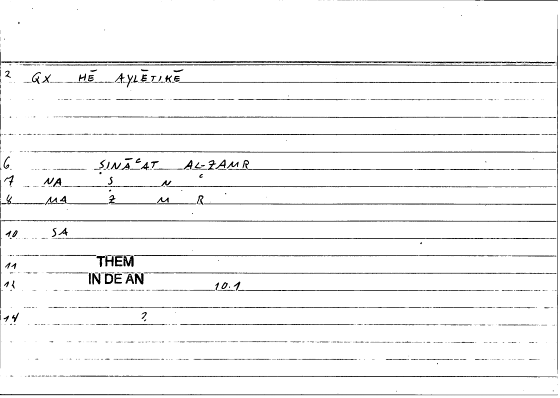 2 GX HĒ AYLĒTIKĒ
6 ṢINĀʿAT AL-ZAMR
7 NA Ṣ N ʿ
8 MA Z M R
10 SA
11 THEM
12 IN DE AN 10.1
14 ?